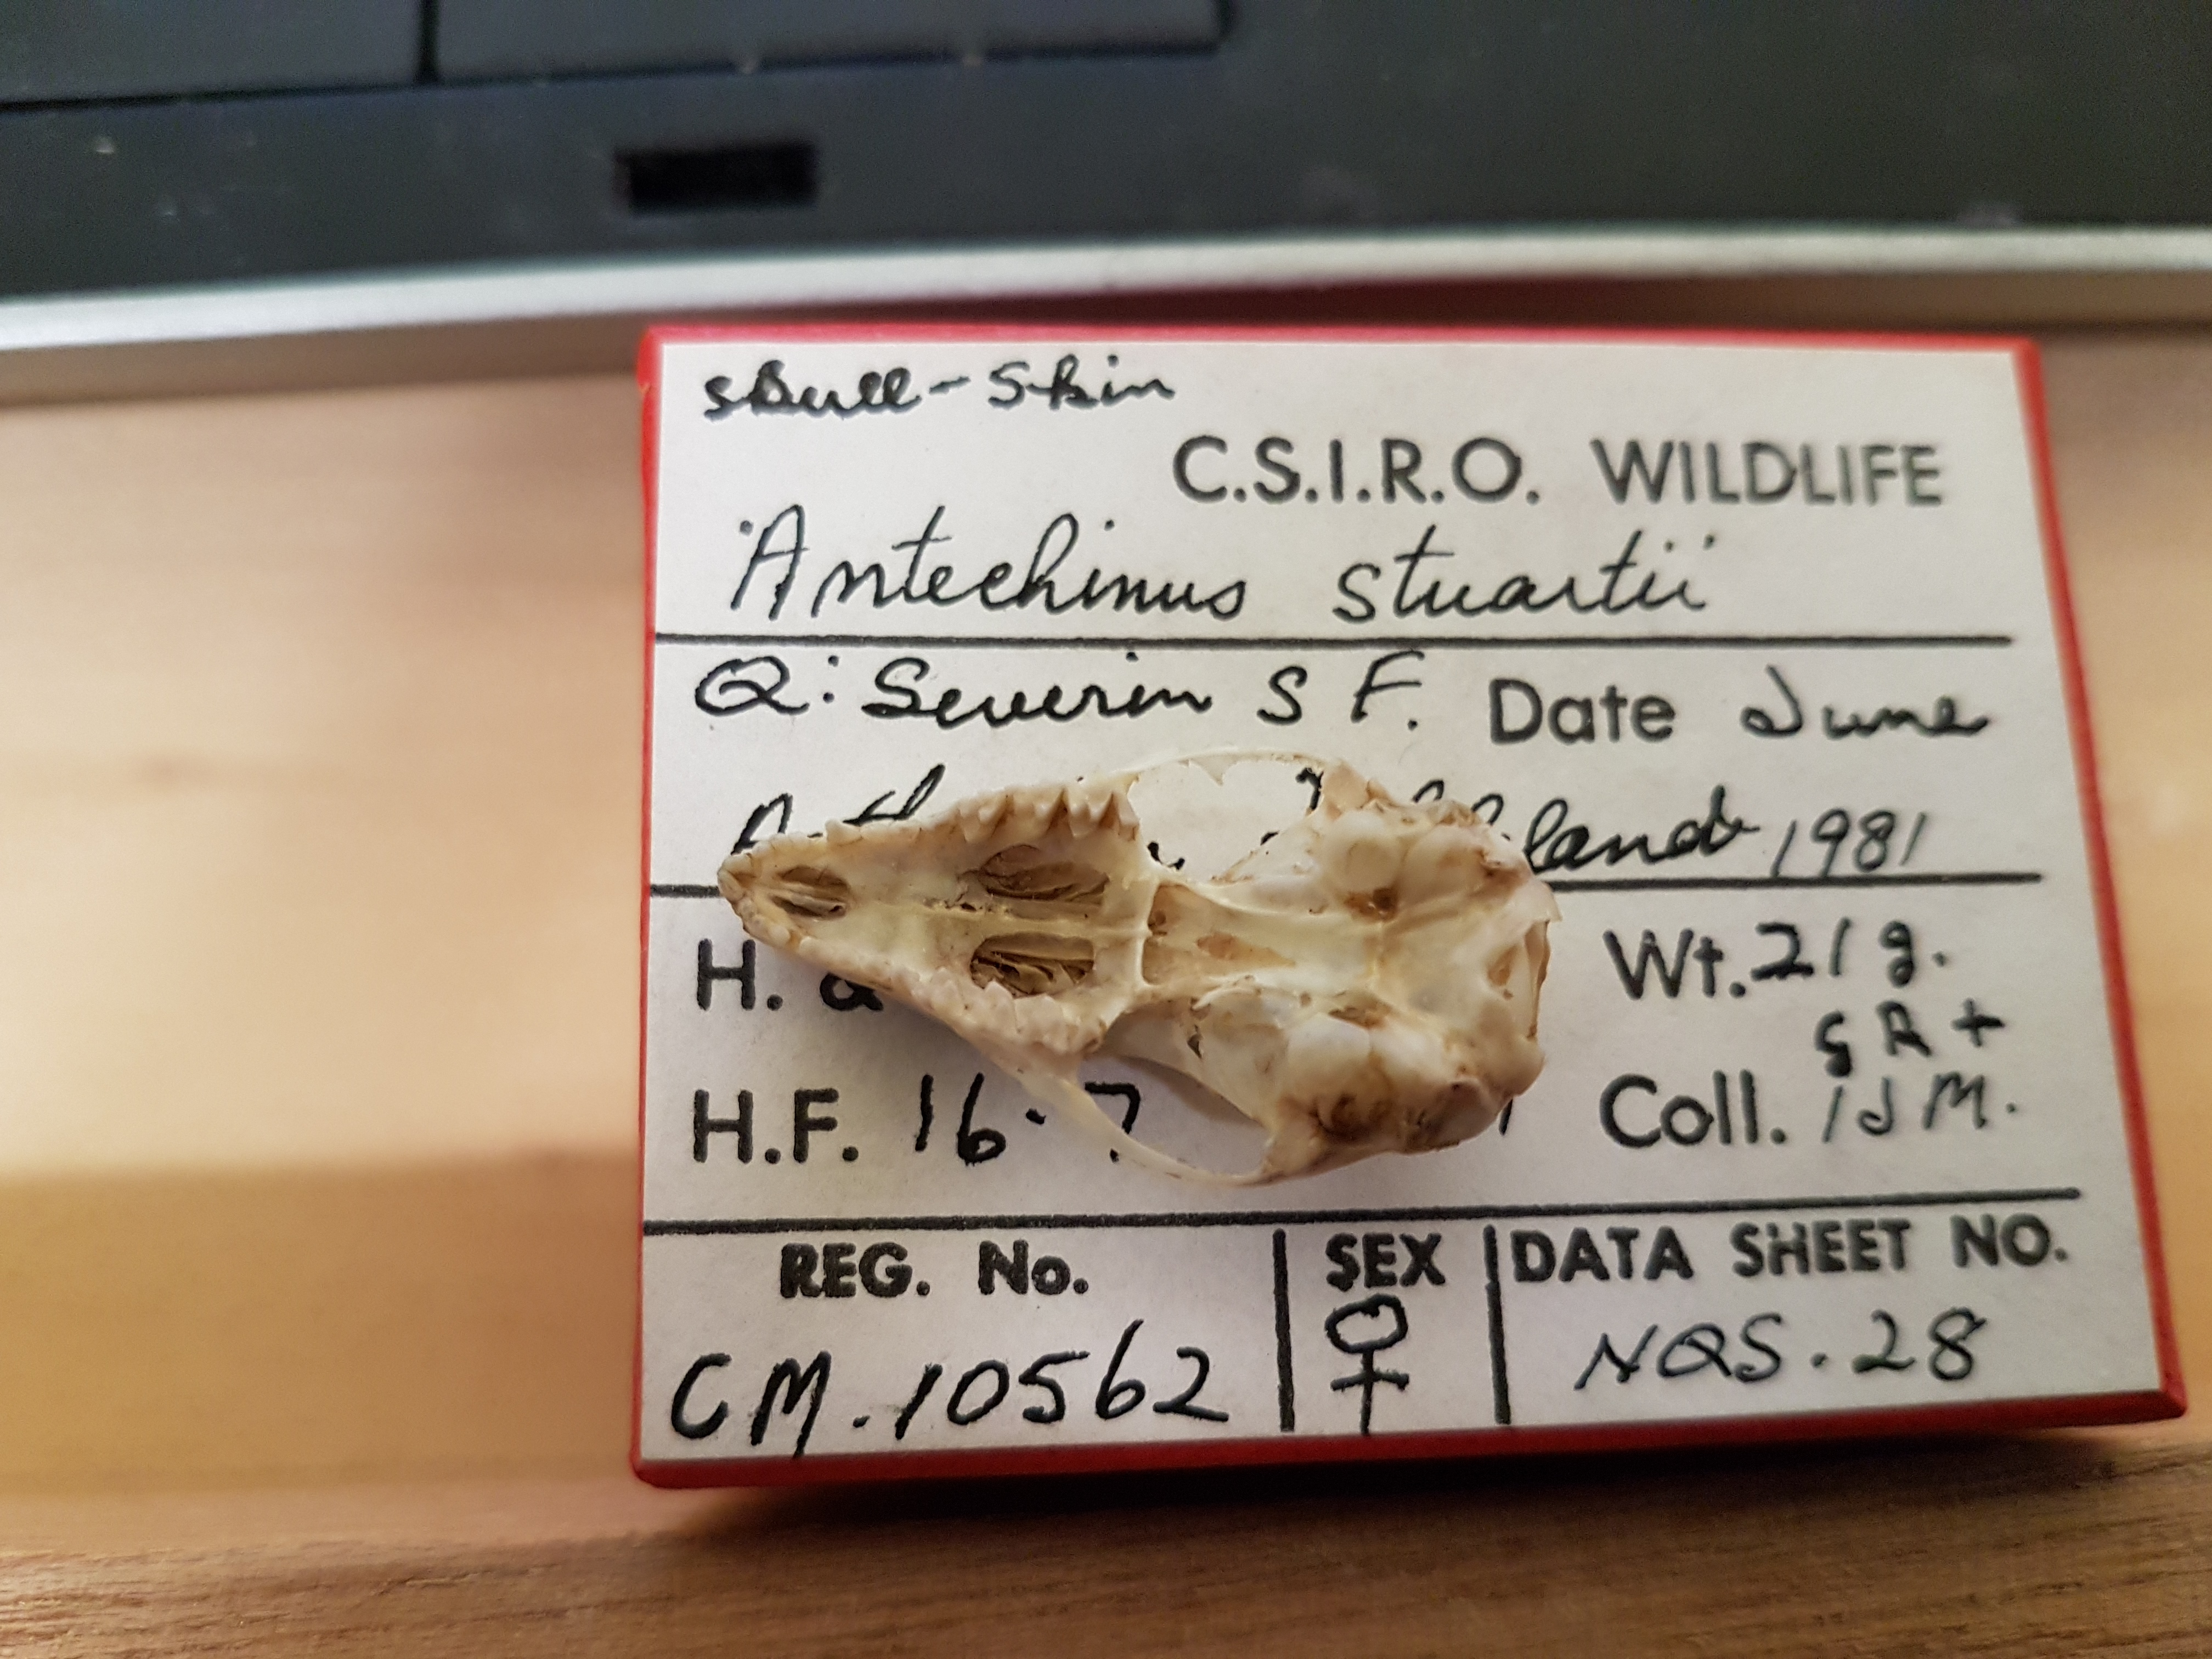 skull-skin
C.S.I.R.O. WILDLIFE
Antechinus stuartii
Q: Severin S F. Date June
land 1981
H. Wt. 21 g.
H.F. 16.7 Coll. IJM.
REG. No. SEX DATA SHEET NO.
CM.10562 ♀ NQS.28